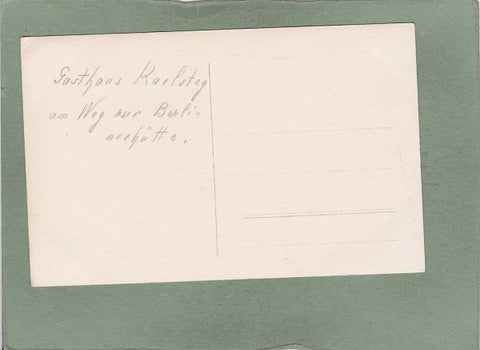 Gasthaus Karlsteg
am Weg zur Berli-
nerhütte.